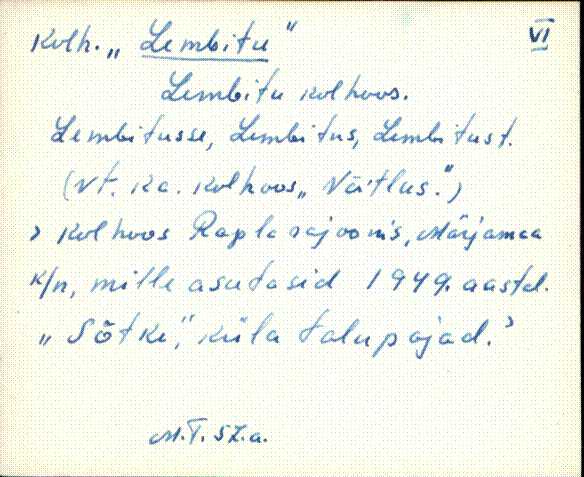 Kolh. „Lembitu" VI
Lembitu kolhoos.
Lembitusse, Lembitus, Lembitust.
(Vt. ka. kolhoos „Võitlus.")
› Kolhoos Rapla rajoonis, Märjamaa
k/n, mille asutasid 1949. aastal.
„Sõtke", küla talupojad.›
M.T. 57.a.